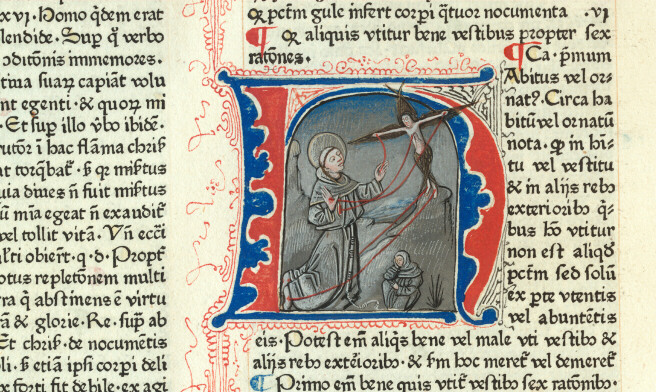 xvj. Homo q̄dem erat
lendide. Suꝑ q̄ verbo
ꝯditōnis immemores.
tiua suaꝝ capiāt volu
nt egenti. & quoꝝ mi
. Et suꝑ illo v̄bo ibidē.
rutōr ī hac flāma chris
at torq̄bat̄. ꝑ q̄ mistus
uia diues ñ fuit mistus
ū mīa egeat ñ exaudit̄
vel tollit vitā. Vñ ecci
lti obierūt. q. d. Propt̄
otus repletōnem multi
ra q̄ abstinens ē virtu
ā & glorie. Re. suꝑ ab
Et chris. de nocumētis
li. ꝑ etiā ipsi corpi deli
x forti fit debile. ex agi
ꝙ pctm̄ gule infert corpi q̄tuor nocumenta .vj
¶ ꝙ aliquis vtitur bene vestibus propter sex
ratōnes.
¶ Ca. p̄mum
Abitus vel or-
nat⁹. Circa ha
bitū vel ornatū
nota. ꝙ in hi-
tu vel vestitu
& in alijs reb⁹
exteriorib⁹ q̄-
bus hō vtitur
non est aliqd̄
pctm̄ sed solū
ex ꝑte vtentis
vel abuntētis
eis. Potest em̄ aliq̄s bene vel male vti vestib⁹ &
alijs reb⁹ exterioribo. & s̄m hoc meret̄ vel demeret̄
¶ Primo em̄ bene quis vtit̄ vestib⁹ sex rationib⁹.